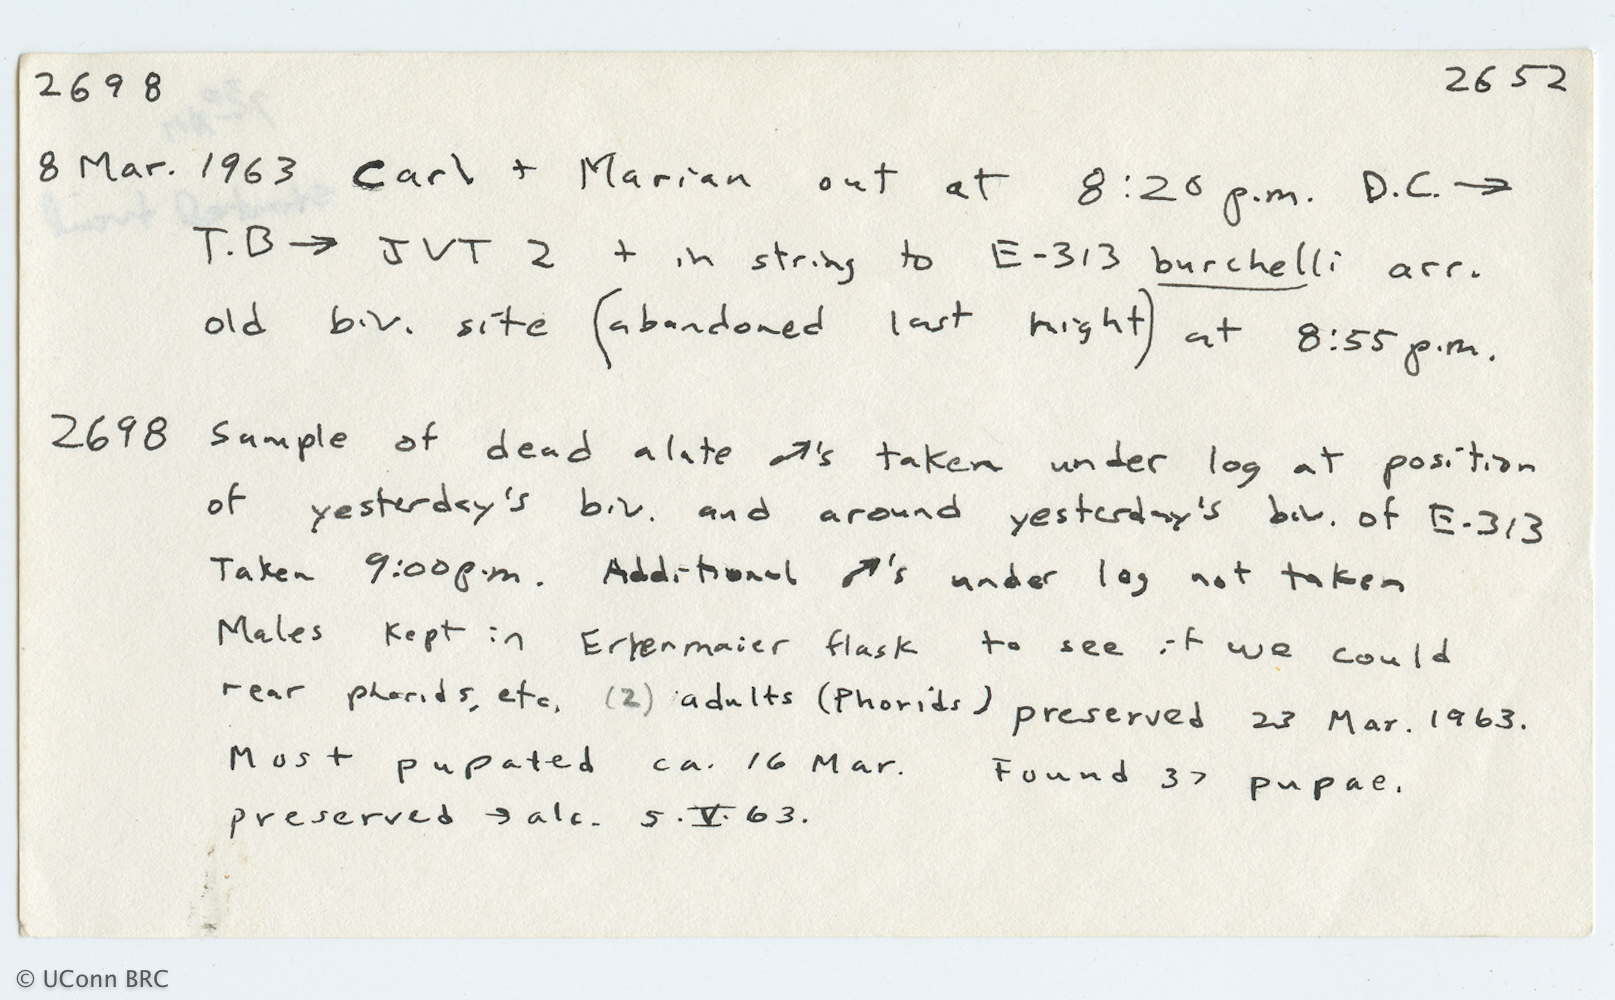 2698 2652
8 Mar. 1963 Carl + Marian out at 8:20 p.m. D.C. →
T.B → JVT 2 + in string to E-313 burchelli arr.
old biv. site (abandoned last night) at 8:55 p.m.
2698 Sample of dead alate ♂'s taken under log at position
of yesterday's biv. and around yesterday's biv. of E-313
Taken 9:00 p.m. Additional ♂'s under log not taken
Males kept in Erlenmaier flask to see if we could
rear phorids, etc. (2) adults (Phorids) preserved 23 Mar. 1963.
Most pupated ca. 16 Mar. Found 37 pupae.
preserved → alc. 5.V.63.
© UConn BRC